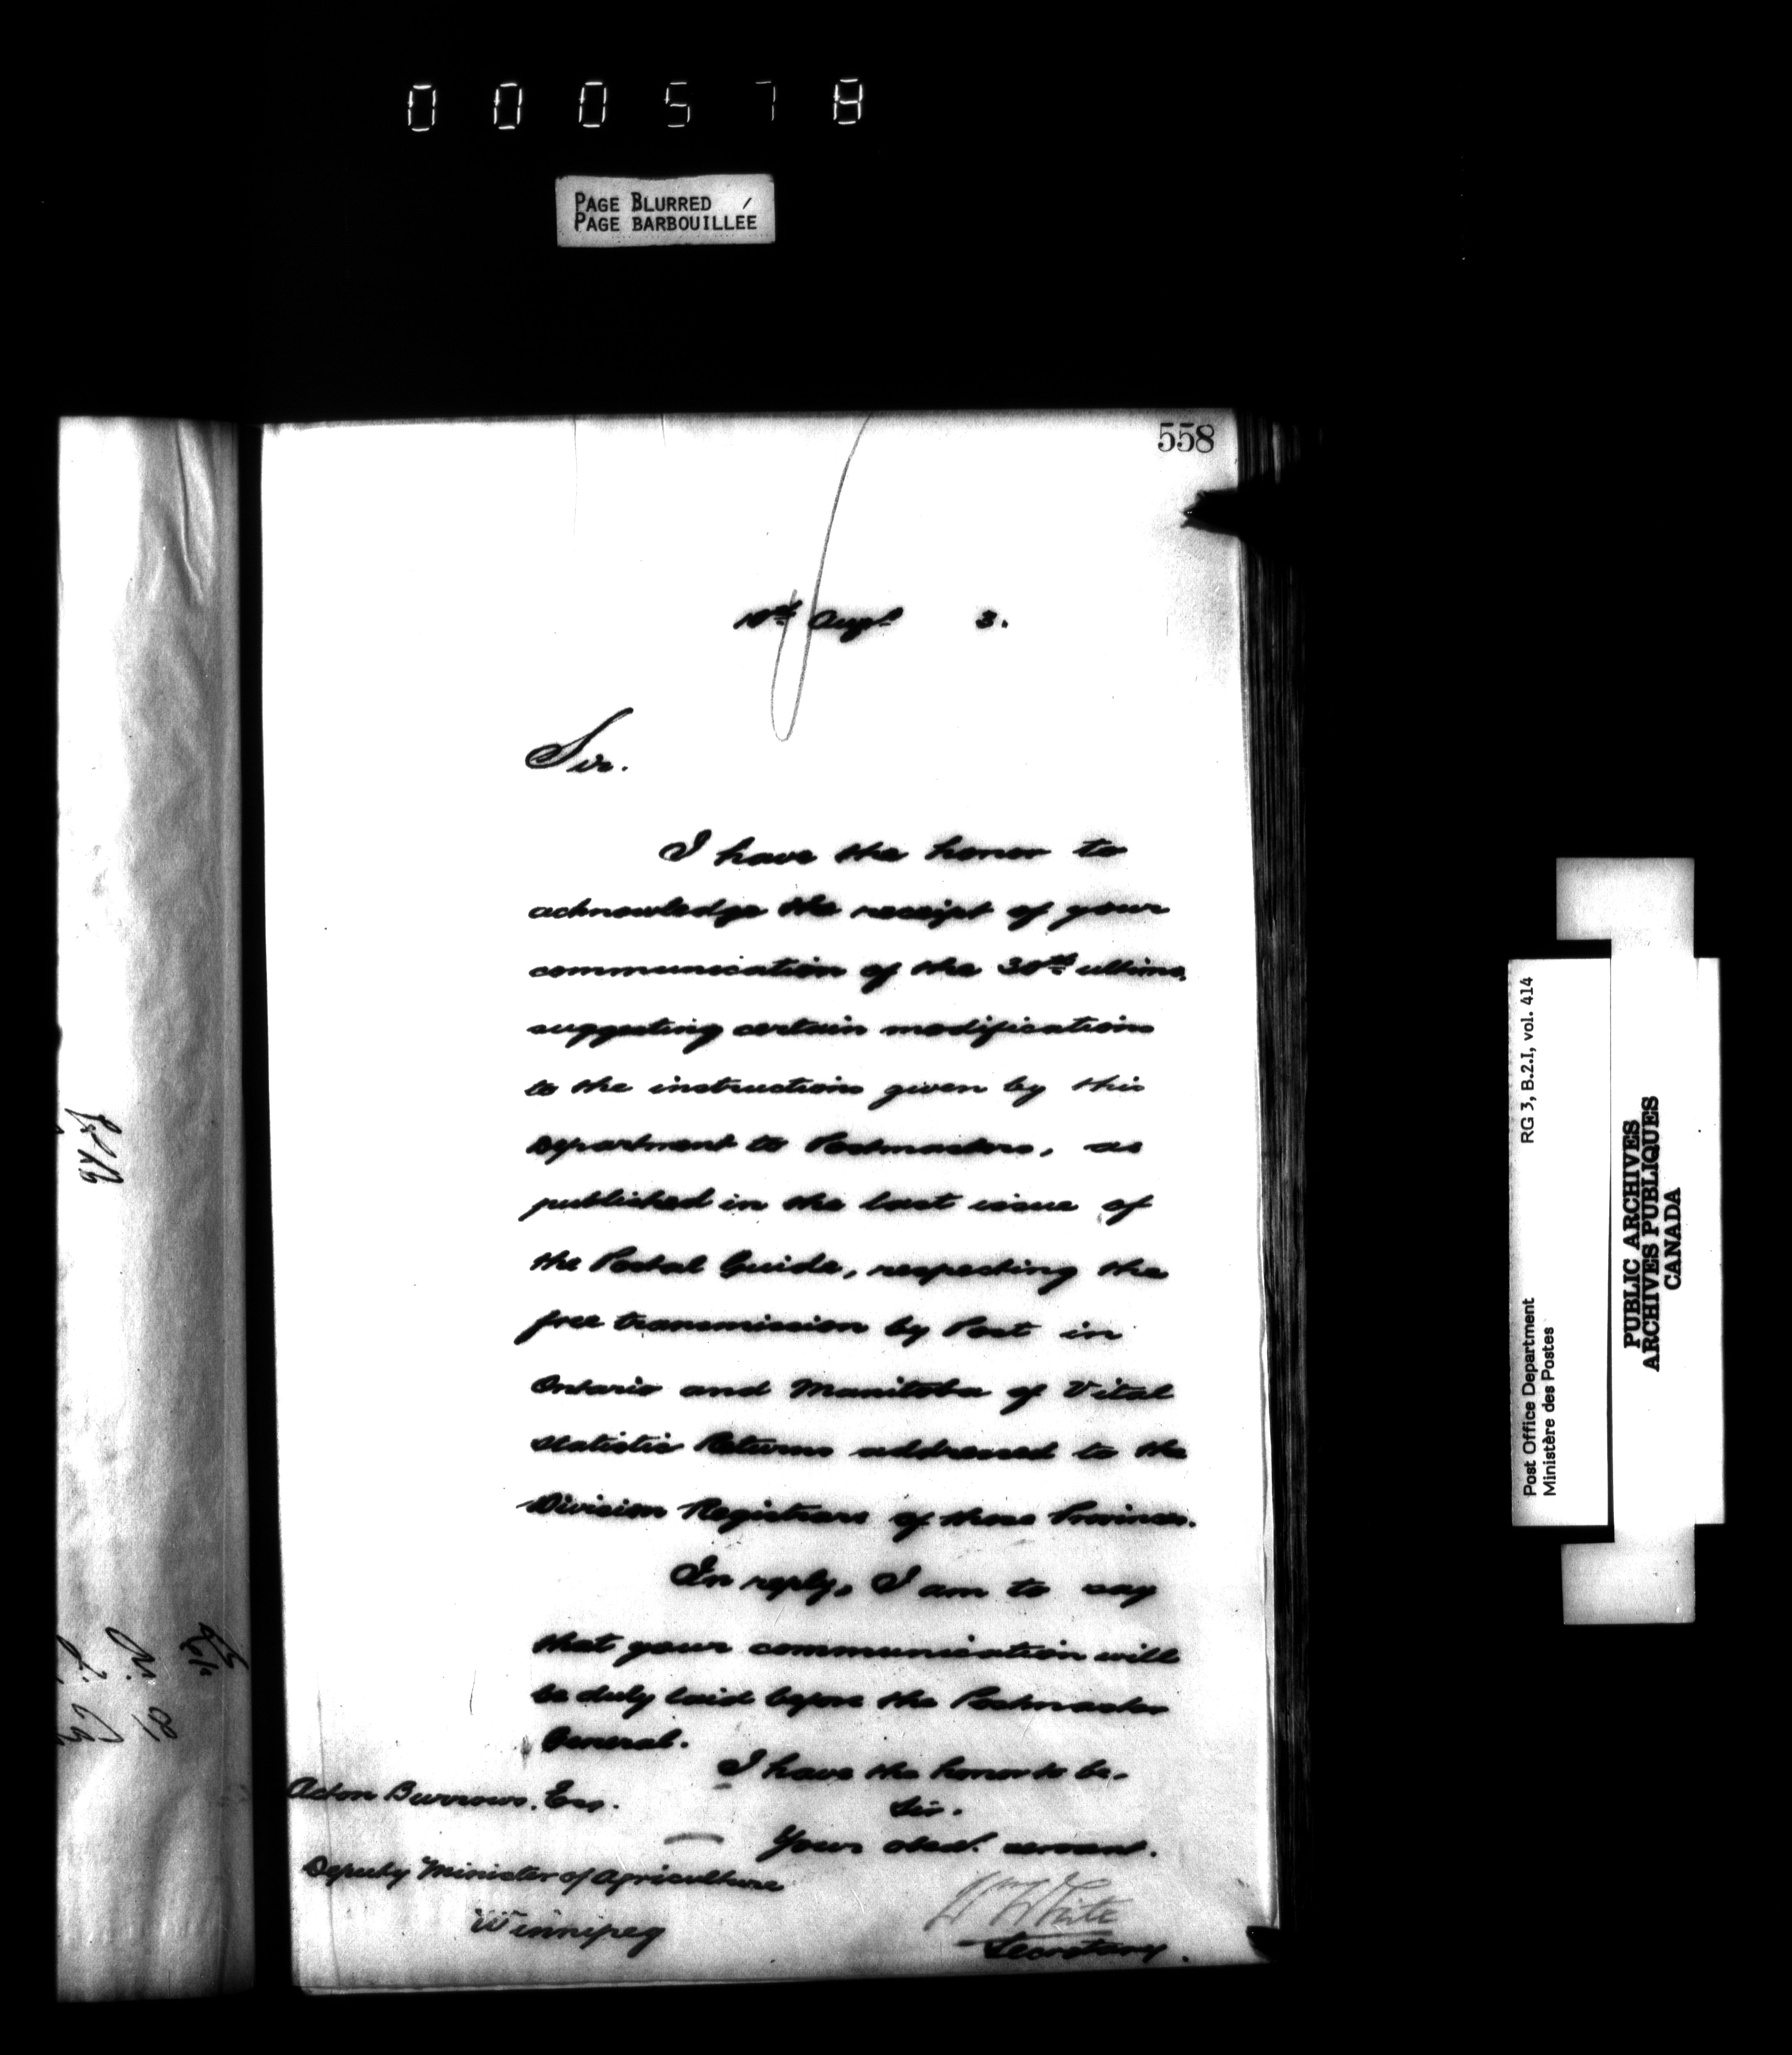 000578
PAGE BLURRED
PAGE BARBOUILLÉE
558
Augt. 3.
Sir.
I have the honor to
acknowledge the receipt of your
communication of the 30th ultimo,
suggesting certain modifications
to the instructions given by this
Department to Postmasters, as
published in the last issue of
the Postal Guide, respecting the
free transmission by Post in
Ontario and Manitoba of Vital
Statistic Returns addressed to the
Division Registrars of those Provinces.
In reply, I am to say
that your communication will
be duly laid before the Postmaster
General.
I have the honor to be.
Sir.
Your obedt. servant.
Wm White
Secretary.
Acton Burrows. Esq.
Deputy Minister of Agriculture
Winnipeg
Post Office Department RG 3, B.2.I, vol. 414
Ministère des Postes
PUBLIC ARCHIVES
ARCHIVES PUBLIQUES
CANADA